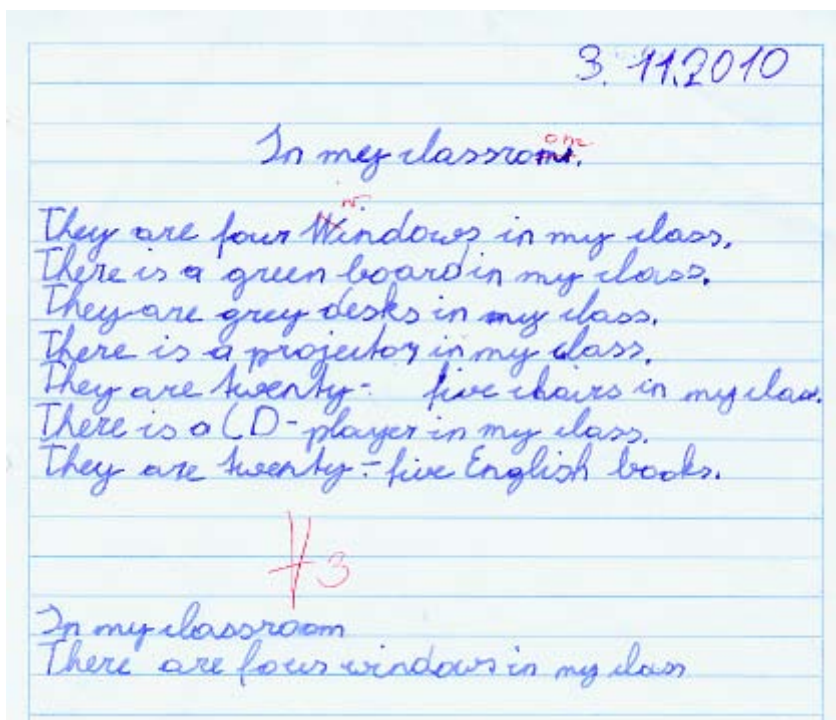 3. 11.2010
In my classrom.
om
w
They are four Windows in my class.
There is a green board in my class.
They are grey desks in my class.
There is a projector in my class.
They are twenty- five chairs in my class.
There is a CD-player in my class.
They are twenty-five English books.
3
In my classroom
There are four windows in my class